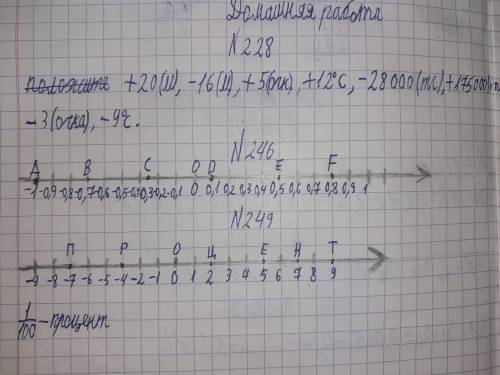 Домашняя работа
N228
положите +20(м), -16(м), +5(очк), +12°С, -28000(тс), +175000
-3(очка), -9°с.
N246
A B C O D E F
-1 -0,9 -0,8 -0,7 -0,6 -0,5 -0,4 -0,3 -0,2 -0,1 0 0,1 0,2 0,3 0,4 0,5 0,6 0,7 0,8 0,9 1
N249
П Р О Ц Е Н Т
-9 -8 -7 -6 -5 -4 -2 -1 0 1 2 3 4 5 6 7 8 9
1/100 - процент